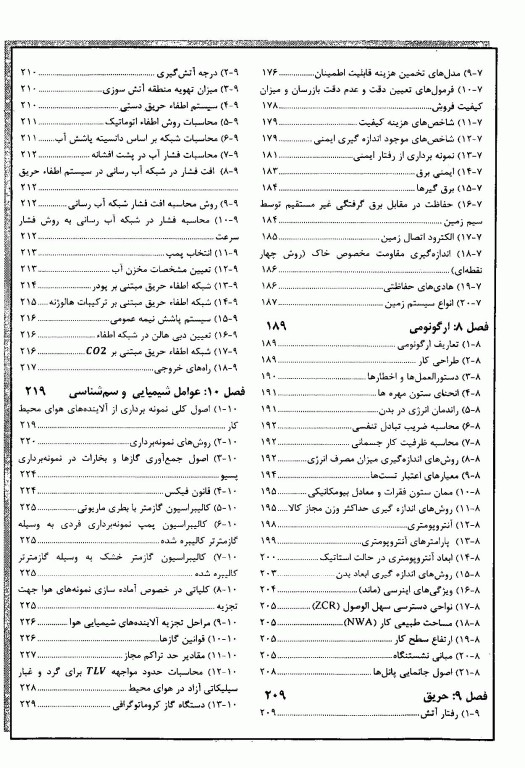 ۹-۷) مدل‌های تخمین هزینه قابلیت اطمینان ۱۷۶
۱۰-۷) فرمول‌های تعیین دقت و عدم دقت بازرسان و میزان
کیفیت فروش ۱۷۸
۱۱-۷) شاخص‌های هزینه کیفیت ۱۷۹
۱۲-۷) شاخص‌های موجود اندازه گیری ایمنی ۱۷۹
۱۳-۷) نمونه برداری از رفتار ایمنی ۱۸۱
۱۴-۷) ایمنی برق ۱۸۳
۱۵-۷) برق گیرها ۱۸۴
۱۶-۷) حفاظت در مقابل برق گرفتگی غیر مستقیم توسط
سیم زمین ۱۸۴
۱۷-۷) الکترود اتصال زمین ۱۸۵
۱۸-۷) اندازه‌گیری مقاومت مخصوص خاک (روش چهار
نقطه‌ای) ۱۸۶
۱۹-۷) هادی‌های حفاظتی ۱۸۶
۲۰-۷) انواع سیستم زمین ۱۸۷
فصل ۸: ارگونومی ۱۸۹
۱-۸) تعاریف ارگونومی ۱۸۹
۲-۸) طراحی کار ۱۸۹
۳-۸) دستورالعمل‌ها و اخطارها ۱۹۰
۴-۸) انحنای ستون مهره ها ۱۹۱
۵-۸) راندمان انرژی در بدن ۱۹۱
۶-۸) محاسبه ضریب تبادل تنفسی ۱۹۲
۷-۸) محاسبه ظرفیت کار جسمانی ۱۹۲
۸-۸) روش‌های اندازه‌گیری میزان مصرف انرژی ۱۹۲
۹-۸) معیارهای اعتبار تست‌ها ۱۹۴
۱۰-۸) ممان ستون فقرات و معادل بیومکانیکی ۱۹۵
۱۱-۸) روش‌های اندازه گیری حداکثر وزن مجاز کالا ۱۹۵
۱۲-۸) آنتروپومتری ۱۹۸
۱۳-۸) پارامترهای آنتروپومتری ۱۹۹
۱۴-۸) ابعاد آنتروپومتری در حالت استاتیک ۲۰۰
۱۵-۸) روش‌های اندازه گیری ابعاد بدن ۲۰۳
۱۶-۸) ویژگی‌های اینرسی (ماند) ۲۰۴
۱۷-۸) نواحی دسترسی سهل الوصول (ZCR) ۲۰۵
۱۸-۸) مساحت طبیعی کار (NWA) ۲۰۵
۱۹-۸) ارتفاع سطح کار ۲۰۵
۲۰-۸) مبانی نشستنگاه ۲۰۵
۲۱-۸) اصول جانمایی پانل‌ها ۲۰۸
فصل ۹: حریق ۲۰۹
۱-۹) رفتار آتش ۲۰۹
۲-۹) درجه آتش‌گیری ۲۱۰
۳-۹) میزان تهویه منطقه آتش سوزی ۲۱۰
۴-۹) سیستم اطفاء حریق دستی ۲۱۰
۵-۹) محاسبات روش اطفاء اتوماتیک ۲۱۱
۶-۹) محاسبات شبکه بر اساس دانسیته پاشش آب ۲۱۱
۷-۹) محاسبات فشار آب در پشت افشانه ۲۱۲
۸-۹) افت فشار در شبکه آب رسانی در سیستم اطفاء حریق
۲۱۲
۹-۹) روش محاسبه افت فشار شبکه آب رسانی ۲۱۲
۱۰-۹) محاسبه فشار در شبکه آب رسانی به روش فشار
سرعت ۲۱۲
۱۱-۹) انتخاب پمپ ۲۱۳
۱۲-۹) تعیین مشخصات مخزن آب ۲۱۳
۱۳-۹) شبکه اطفاء حریق مبتنی بر پودر ۲۱۴
۱۴-۹) شبکه اطفاء حریق مبتنی بر ترکیبات هالوژنه ۲۱۵
۱۵-۹) سیستم پاشش نیمه عمومی ۲۱۶
۱۶-۹) تعیین دبی هالن در شبکه اطفاء ۲۱۶
۱۷-۹) شبکه اطفاء حریق مبتنی بر CO2 ۲۱۶
۱۸-۹) راه‌های خروجی ۲۱۷
فصل ۱۰: عوامل شیمیایی و سم‌شناسی ۲۱۹
۱-۱۰) اصول کلی نمونه برداری از آلاینده‌های هوای محیط
کار ۲۱۹
۲-۱۰) روش‌های نمونه‌برداری ۲۲۰
۳-۱۰) اصول جمع‌آوری گازها و بخارات در نمونه‌برداری
پسیو ۲۲۴
۴-۱۰) قانون فیکس ۲۲۴
۵-۱۰) کالیبراسیون گازمتر با بطری ماریوتی ۲۲۵
۶-۱۰) کالیبراسیون پمپ نمونه‌برداری فردی به وسیله
گازمترتر کالیبره شده ۲۲۵
۷-۱۰) کالیبراسیون گازمتر خشک به وسیله گازمترتر
کالیبره شده ۲۲۵
۸-۱۰) کلیاتی در خصوص آماده سازی نمونه‌های هوا جهت
تجزیه ۲۲۵
۹-۱۰) مراحل تجزیه آلاینده‌های شیمیایی هوا ۲۲۶
۱۰-۱۰) قوانین گازها ۲۲۶
۱۱-۱۰) مقادیر حد تراکم مجاز ۲۲۷
۱۲-۱۰) محاسبات حدود مواجهه TLV برای گرد و غبار
سیلیکاتی آزاد در هوای محیط ۲۲۸
۱۳-۱۰) دستگاه گاز کروماتوگرافی ۲۲۹